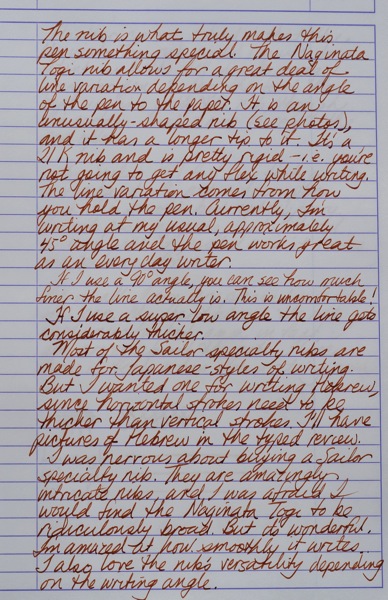 The nib is what truly makes this
pen something special. The Naginata
Togi nib allows for a great deal of
line variation depending on the angle
of the pen to the paper. It is an
unusually-shaped nib (see photos),
and it has a longer tip to it. It's a
21K nib and is pretty rigid - i.e. you're
not going to get any flex while writing.
The line variation comes from how
you hold the pen. Currently, I'm
writing at my usual, approximately
45° angle and the pen works great
as an everyday writer.
If I use a 90° angle, you can see how much
finer the line actually is. This is uncomfortable!
If I use a super low angle the line gets
considerably thicker.
Most of the Sailor specialty nibs are
made for Japanese-styles of writing.
But I wanted one for writing Hebrew,
since horizontal strokes need to be
thicker than vertical strokes. I'll have
pictures of Hebrew in the typed review.
I was nervous about buying a Sailor
specialty nib. They are amazingly
intricate nibs, and I was afraid I
would find the Naginata Togi to be
ridiculously broad. But so wonderful.
I'm amazed at how smoothly it writes.
I also love the nib's versatility depending
on the writing angle.